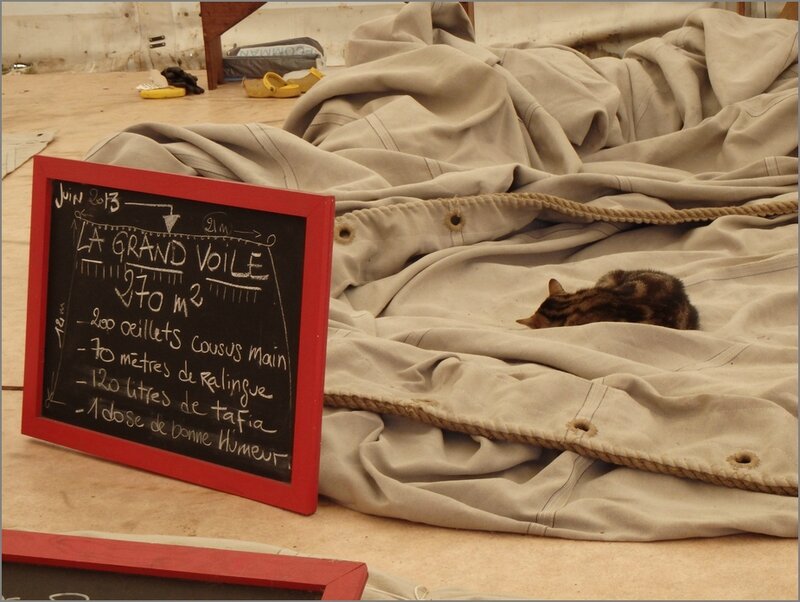 Juin 2013
21m
LA GRAND VOILE
270 m²
- 200 oeillets cousus main
- 70 mètres de Ralingue
- 120 litres de tafia
- 1 dose de bonne Humeur